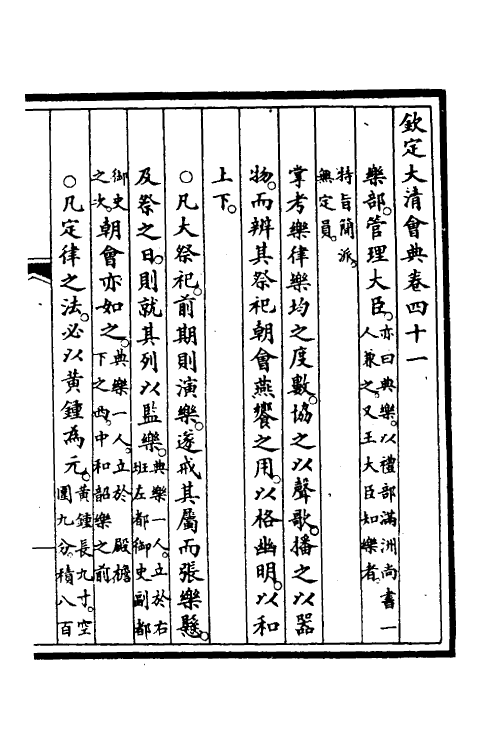 欽定大清會典卷四十一
樂部。管理大臣。亦曰典樂。以禮部滿洲尚書一人兼之。又王大臣知樂者。
特旨簡派。無定員。
掌考樂律樂均之度數。協之以聲歌。播之以器
物。而辨其祭祀朝會燕饗之用。以格幽明。以和
上下。
○凡大祭祀。前期則演樂。遂戒其屬而張樂懸。
及祭之日。則就其列以監樂。典樂一人。立於右班左都御史副都
御史之次。朝會亦如之。典樂一人。立於 殿檐下之西。中和韶樂之前
○凡定律之法。必以黃鍾為元。黃鍾長九寸。空圍九分。積八百